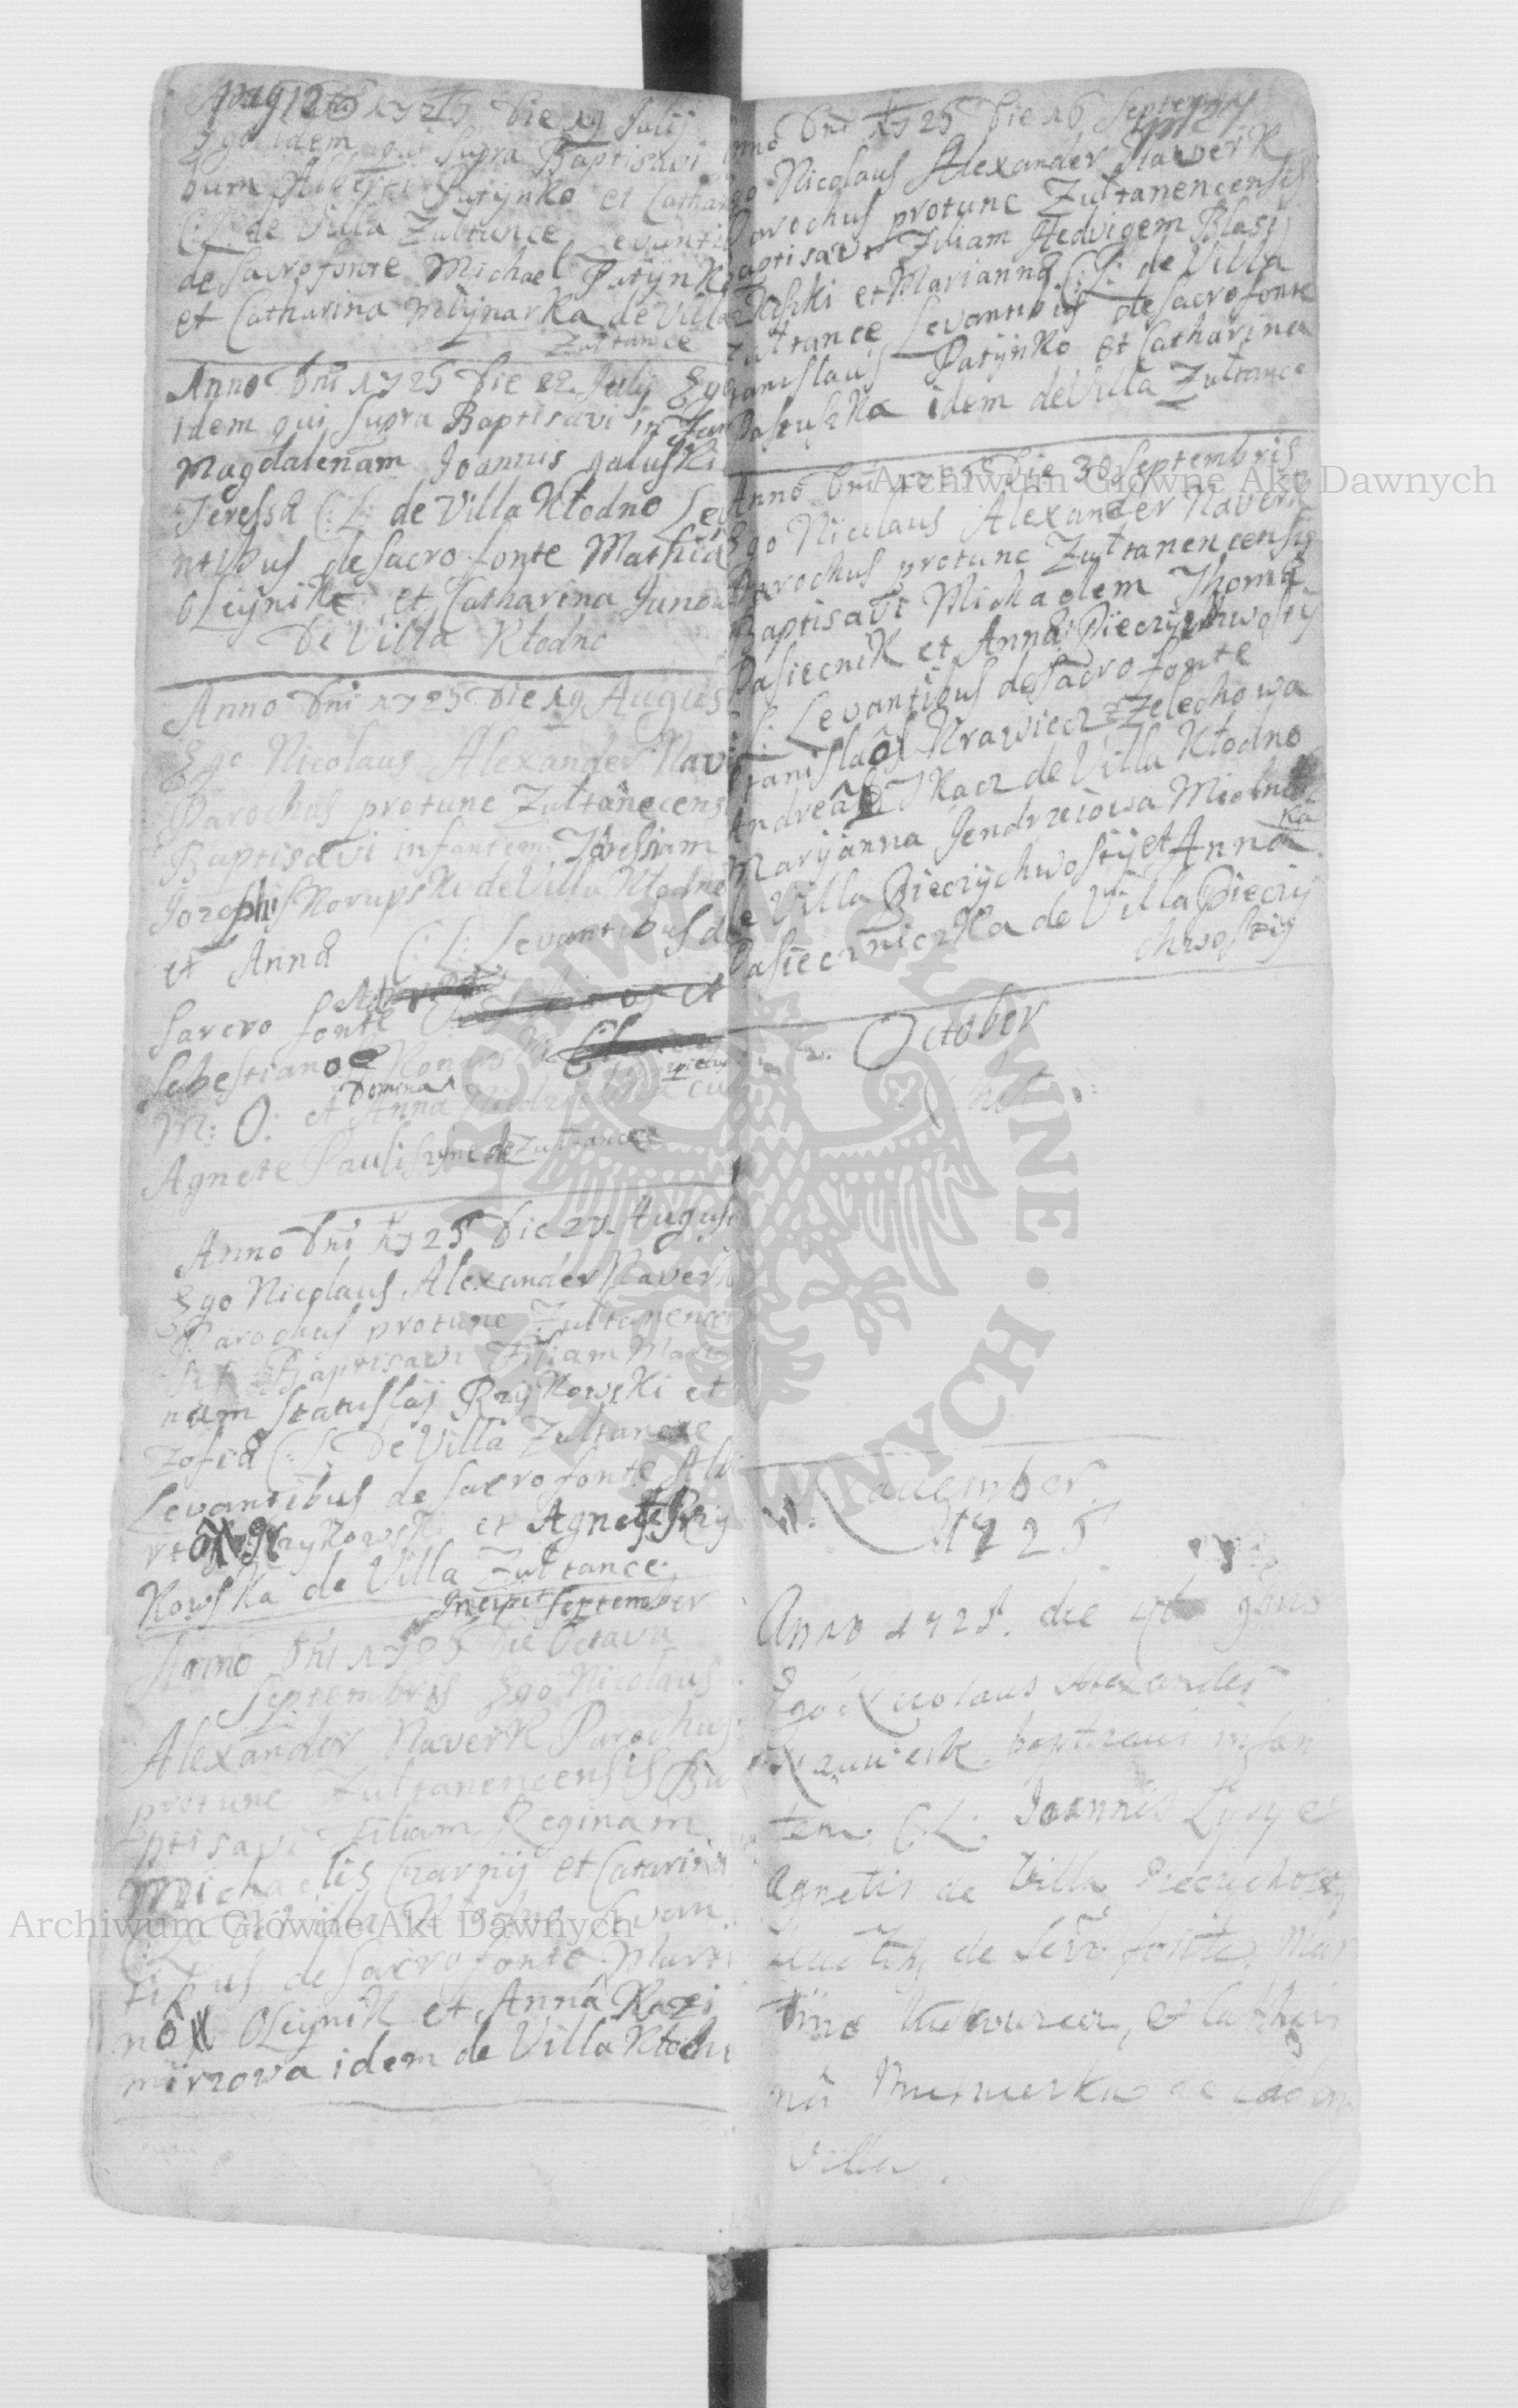 pag 12
1725 Die 19 Julij
Ego idem qui Supra Baptisavi
bum Alberti Patÿnko et Cathar
C: L: de Villa Zultance Levantib
de Sacrofonte Michael Patÿnko
et Catharina Młÿnarka de Villa
Zultance
Anno Dni 1725 Die 22 Julij Ego
idem qui Supra Baptisavi in Fan
Magdalenam Joannis galuski
Teressa C: L: de Villa Kłodno Lev
ntibus de Sacro fonte Mathia
oleÿnik et Catharina Janow
De Villa Kłodno
Anno Dni 1725 Die 19 Augus
Ego Nicolaus Alexander Nav
Parochus protunc Zultanecens
Baptisavi infantem Theresiam
Josephi Skorupski de Villa Kłodno
et Anna C: L: Levantibus de
Sacro fonte
Sebestiano Konarski
M: O: et Domina Anna
Agnete Pauliszyne de Zultance
Anno Dni 1725 Die 27 August
Ego Nicolaus Alexander Naverk
Parochus protunc Zultanencen
sis Baptisavi Filiam Maria
nam Stanislaj Rzÿkowski et
Zofia C: L: De Villa Zultance
Levantibus de Sacro fonte Alb
rto Rzykowski et Agnete Rzÿ
kowska de Villa Zultance
Incipit September
Anno Dni 1725 Die Octava
Septembris Ego Nicolaus
Alexander Naverk Parochus
protunc Zultanencensis Ba
ptisavi Filiam Reginam
Michaelis Czarnÿ et Catarina
C: L: de Villa Kłodno Levan
tibus de Sacro fonte Marti
no Oleÿnik et Anna Kazi
mirzowa idem de Villa Kłodn
nno Dni 1725 Die 16 Septembris
go Nicolaus Alexander Naverk
Parochus protunc Zultanencensis
aptisavi Filiam Hedvigem Blasij
Kiszki et Marianna C: L: de Villa
Zultance Levantibus de Sacro fonte
tanislaus Patÿnko et Catharina
Pastuszka idem de Villa Zultance
Anno Dni 1725 Die 30 Septembris
Ego Nicolaus Alexander Naverk
Parochus protunc Zultanencensis
Baptisavi Michaelem Thoma
Pasiecnik et Anna Pieczÿchwostÿ
C: L: Levantibus de Sacro fonte
Stanislao Krawiecz Zelechowa
Andrea Tkacz de Villa Kłodno
Marÿanna Jendrzeiowa Mielnic
ka
de Villa Pieczÿchwostÿ et Anna
Pasieczniczka de Villa Pieczÿ
chwostÿ
October
November
1725
Anno 1725 die 4ta 9bris
Ego Nicolaus Alexander
Nauwerk baptisaui infan
tem C. L. Joannis Łysy et
Agnetis de Villa Pieczychwosty
de Sacro fonte Mar
tino et Cathari
nâ de eadem
Villa.
Archiwum Główne Akt Dawnych
Archiwum Główne Akt Dawnych
ARCHIWUM GŁÓWNE · AKT DAWNYCH ·